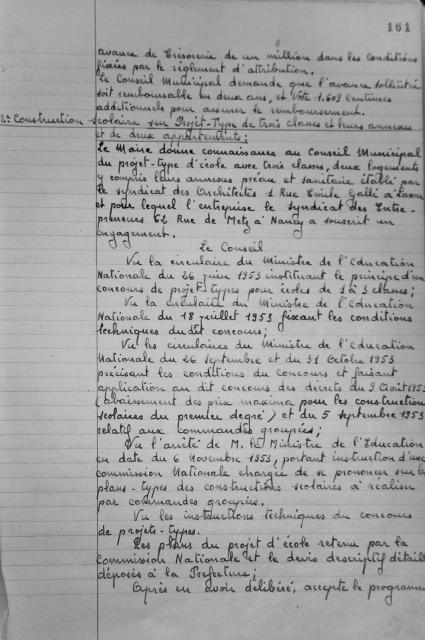 161
avance de Trésorerie de un million dans les conditions
fixées par le règlement d'attribution.
Le Conseil Municipal demande que l'avance sollicitée
soit remboursable en deux ans, et vote 1.609 centimes
additionnels pour assurer le remboursement.
2° Construction scolaire sur Projet-Type de trois classes et leurs annexes
et de deux appartements:
Le Maire donne connaissance au Conseil Municipal
du projet-type d'école avec trois classes, deux logements
y compris leurs annexes préau et sanitaire établi par
le syndicat des Architectes 1 Rue Emile Gallé à Laxou
et pour lequel l'entreprise le syndicat des Entre-
preneurs 62 Rue de Metz à Nancy a souscrit un
engagement.
Le Conseil
Vu la circulaire du Ministre de l'Education
Nationale du 26 juin 1953 instituant le principe d'un
concours de projets-types pour écoles de 1 à 3 classes;
Vu la circulaire du Ministre de l'Education
Nationale du 18 juillet 1953 fixant les conditions
techniques du dit concours;
Vu les circulaires du Ministre de l'Education
Nationale du 26 septembre et du 31 Octobre 1953
précisant les conditions du concours et faisant
application au dit concours des décrets du 9 Août 1953
(abaissement des prix maxima pour les construction
scolaires du premier degré) et du 5 septembre 1953
relatif aux commandes groupées;
Vu l'arrêté de M. le Ministre de l'Education
en date du 6 Novembre 1953, portant instruction d'une
commission Nationale chargée de se prononcer sur les
plans-types des constructions scolaires à réaliser
par commandes groupées.
Vu les instructions techniques du concours
de projets-types.
Les plans du projet d'école retenu par la
Commission Nationale et le devis descriptif détaillé
déposés à la Préfecture;
Après en avoir délibéré, accepte le programme